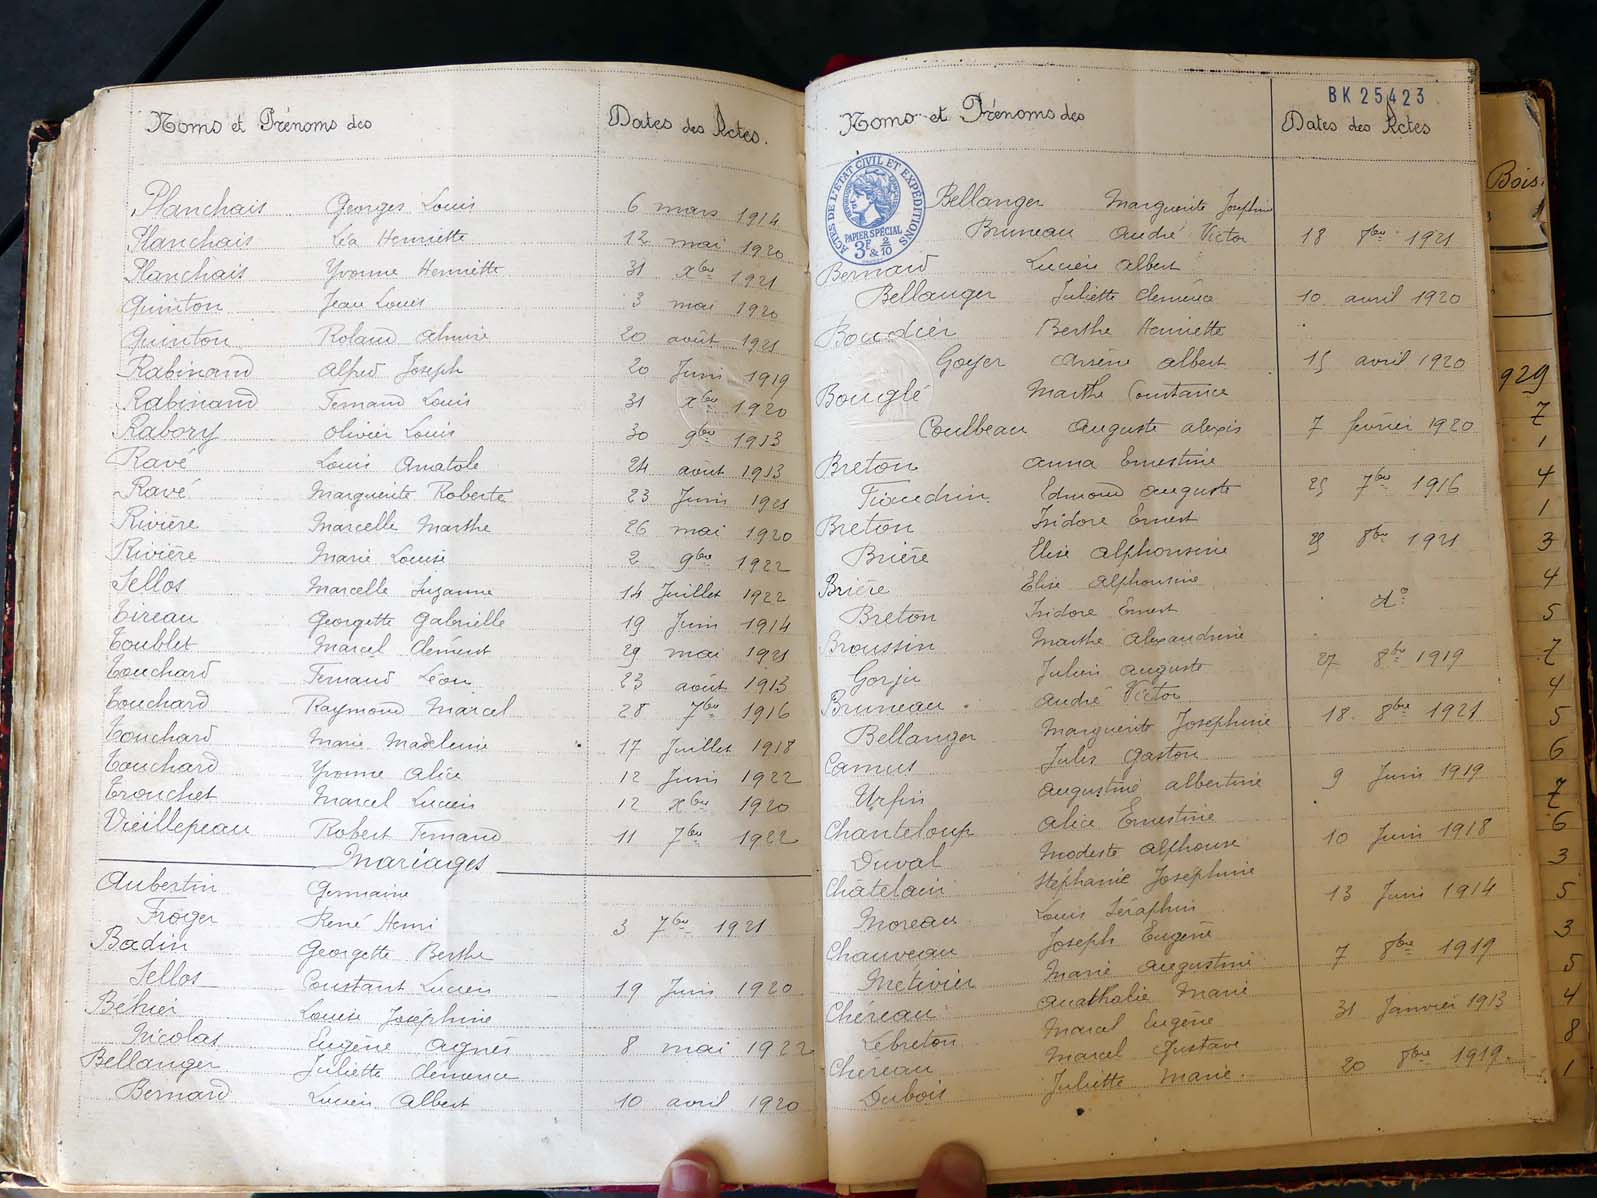 Noms et Prénoms des Dates des Actes.
Planchais Georges Louis 6 mars 1914
Planchais Léa Henriette 12 mai 1920
Planchais Yvonne Henriette 31 Xbre 1921
Quinton Jean Louis 3 mai 1920
Quinton Roland 20 août 1921
Rabinand Alfred Joseph 20 Juin 1919
Rabinand Fernand Louis 31 Xbre 1920
Rabory Olivier Louis 30 9bre 1913
Ravé Louis Anatole 24 août 1913
Ravé Marguerite Roberte 23 Juin 1921
Rivière Marcelle Marthe 26 mai 1920
Rivière Marie Louise 2 9bre 1922
Sellos Marcelle Suzanne 14 Juillet 1922
Tireau Georgette Gabrielle 19 Juin 1914
Toublet Marcel Clément 29 mai 1921
Touchard Fernand Léon 23 août 1913
Touchard Raymond Marcel 28 7bre 1916
Touchard Marie Madeleine 17 Juillet 1918
Touchard Yvonne Alice 12 Juin 1922
Trouchet Marcel Lucien 12 Xbre 1920
Vieillepeau Robert Fernand 11 7bre 1922
Mariages
Aubertin Germaine
Froger René Henri 3 7bre 1921
Badin Georgette Berthe
Sellos Constant Lucien 19 Juin 1920
Bethier Louise Joséphine
Nicolas Eugène Agnès 8 mai 1922
Bellanger Juliette Clémence
Bernard Lucien Albert 10 avril 1920
BK 25423
Noms et Prénoms des Dates des Actes
ACTES DE L'ETAT CIVIL ET EXPEDITIONS
PAPIER SPÉCIAL
3F & 2/10
Bellanger Marguerite Joséphine
Bruneau André Victor 18 8bre 1921
Bernard Lucien Albert
Bellanger Juliette Clémence 10 avril 1920
Boudier Berthe Henriette
Goyer Arsène Albert 15 avril 1920
Bouglé Marthe Constance
Coulbeau Auguste Alexis 7 février 1920
Breton Anna Ernestine
Edmond Auguste 25 7bre 1916
Breton Isidore Ernest
Brière Elise Alphonsine 29 8bre 1921
Brière Elise Alphonsine
Breton Isidore Ernest do
Broussin Marthe Alexandrine
Gorju Julien Auguste 27 8bre 1919
Bruneau André Victor
Bellanger Marguerite Joséphine 18 8bre 1921
Camus Jules Gaston
Urfin Augustine Albertine 9 Juin 1919
Chanteloup Alice Ernestine
Duval Modeste Alphonse 10 Juin 1918
Chatelain Stéphanie Joséphine
Moreau Louis Séraphin 13 Juin 1914
Chauveau Joseph Eugène
Metivier Marie Augustine 7 8bre 1919
Chéreau Anathalie Marie
Lebreton Marcel Eugène 31 Janvier 1913
Chéreau Marcel Gustave
Dubois Juliette Marie 20 8bre 1919
Bois.
929
7
1
4
1
3
4
5
7
4
5
6
7
6
3
5
3
5
4
8
1